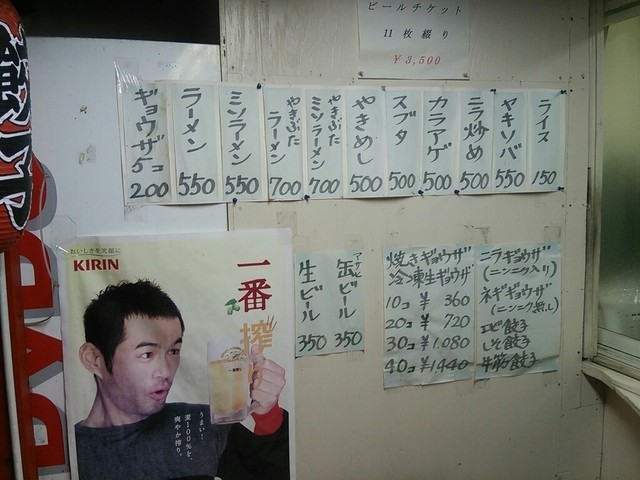 ビールチケット
11枚綴り
￥3,500
ギョウザ5コ
200
ラーメン
550
ミソラーメン
550
やきぶた
ラーメン
700
やきぶた
ミソラーメン
700
やきめし
500
スブタ
500
カラアゲ
500
ニラ炒め
500
ヤキソバ
550
ライス
150
おいしさを笑顔に
KIRIN
一番搾
うまい!
麦100%を、
爽やか搾り。
生ビール
350
缶ビール
350
焼きギョウザ
冷凍生ギョウザ
10コ ￥360
20コ ￥720
30コ ￥1,080
40コ ￥1440
ニラギョウザ
(ニンニク入り)
ネギギョウザ
(ニンニク無し)
エビ餃子
しそ餃子
牛筋餃子